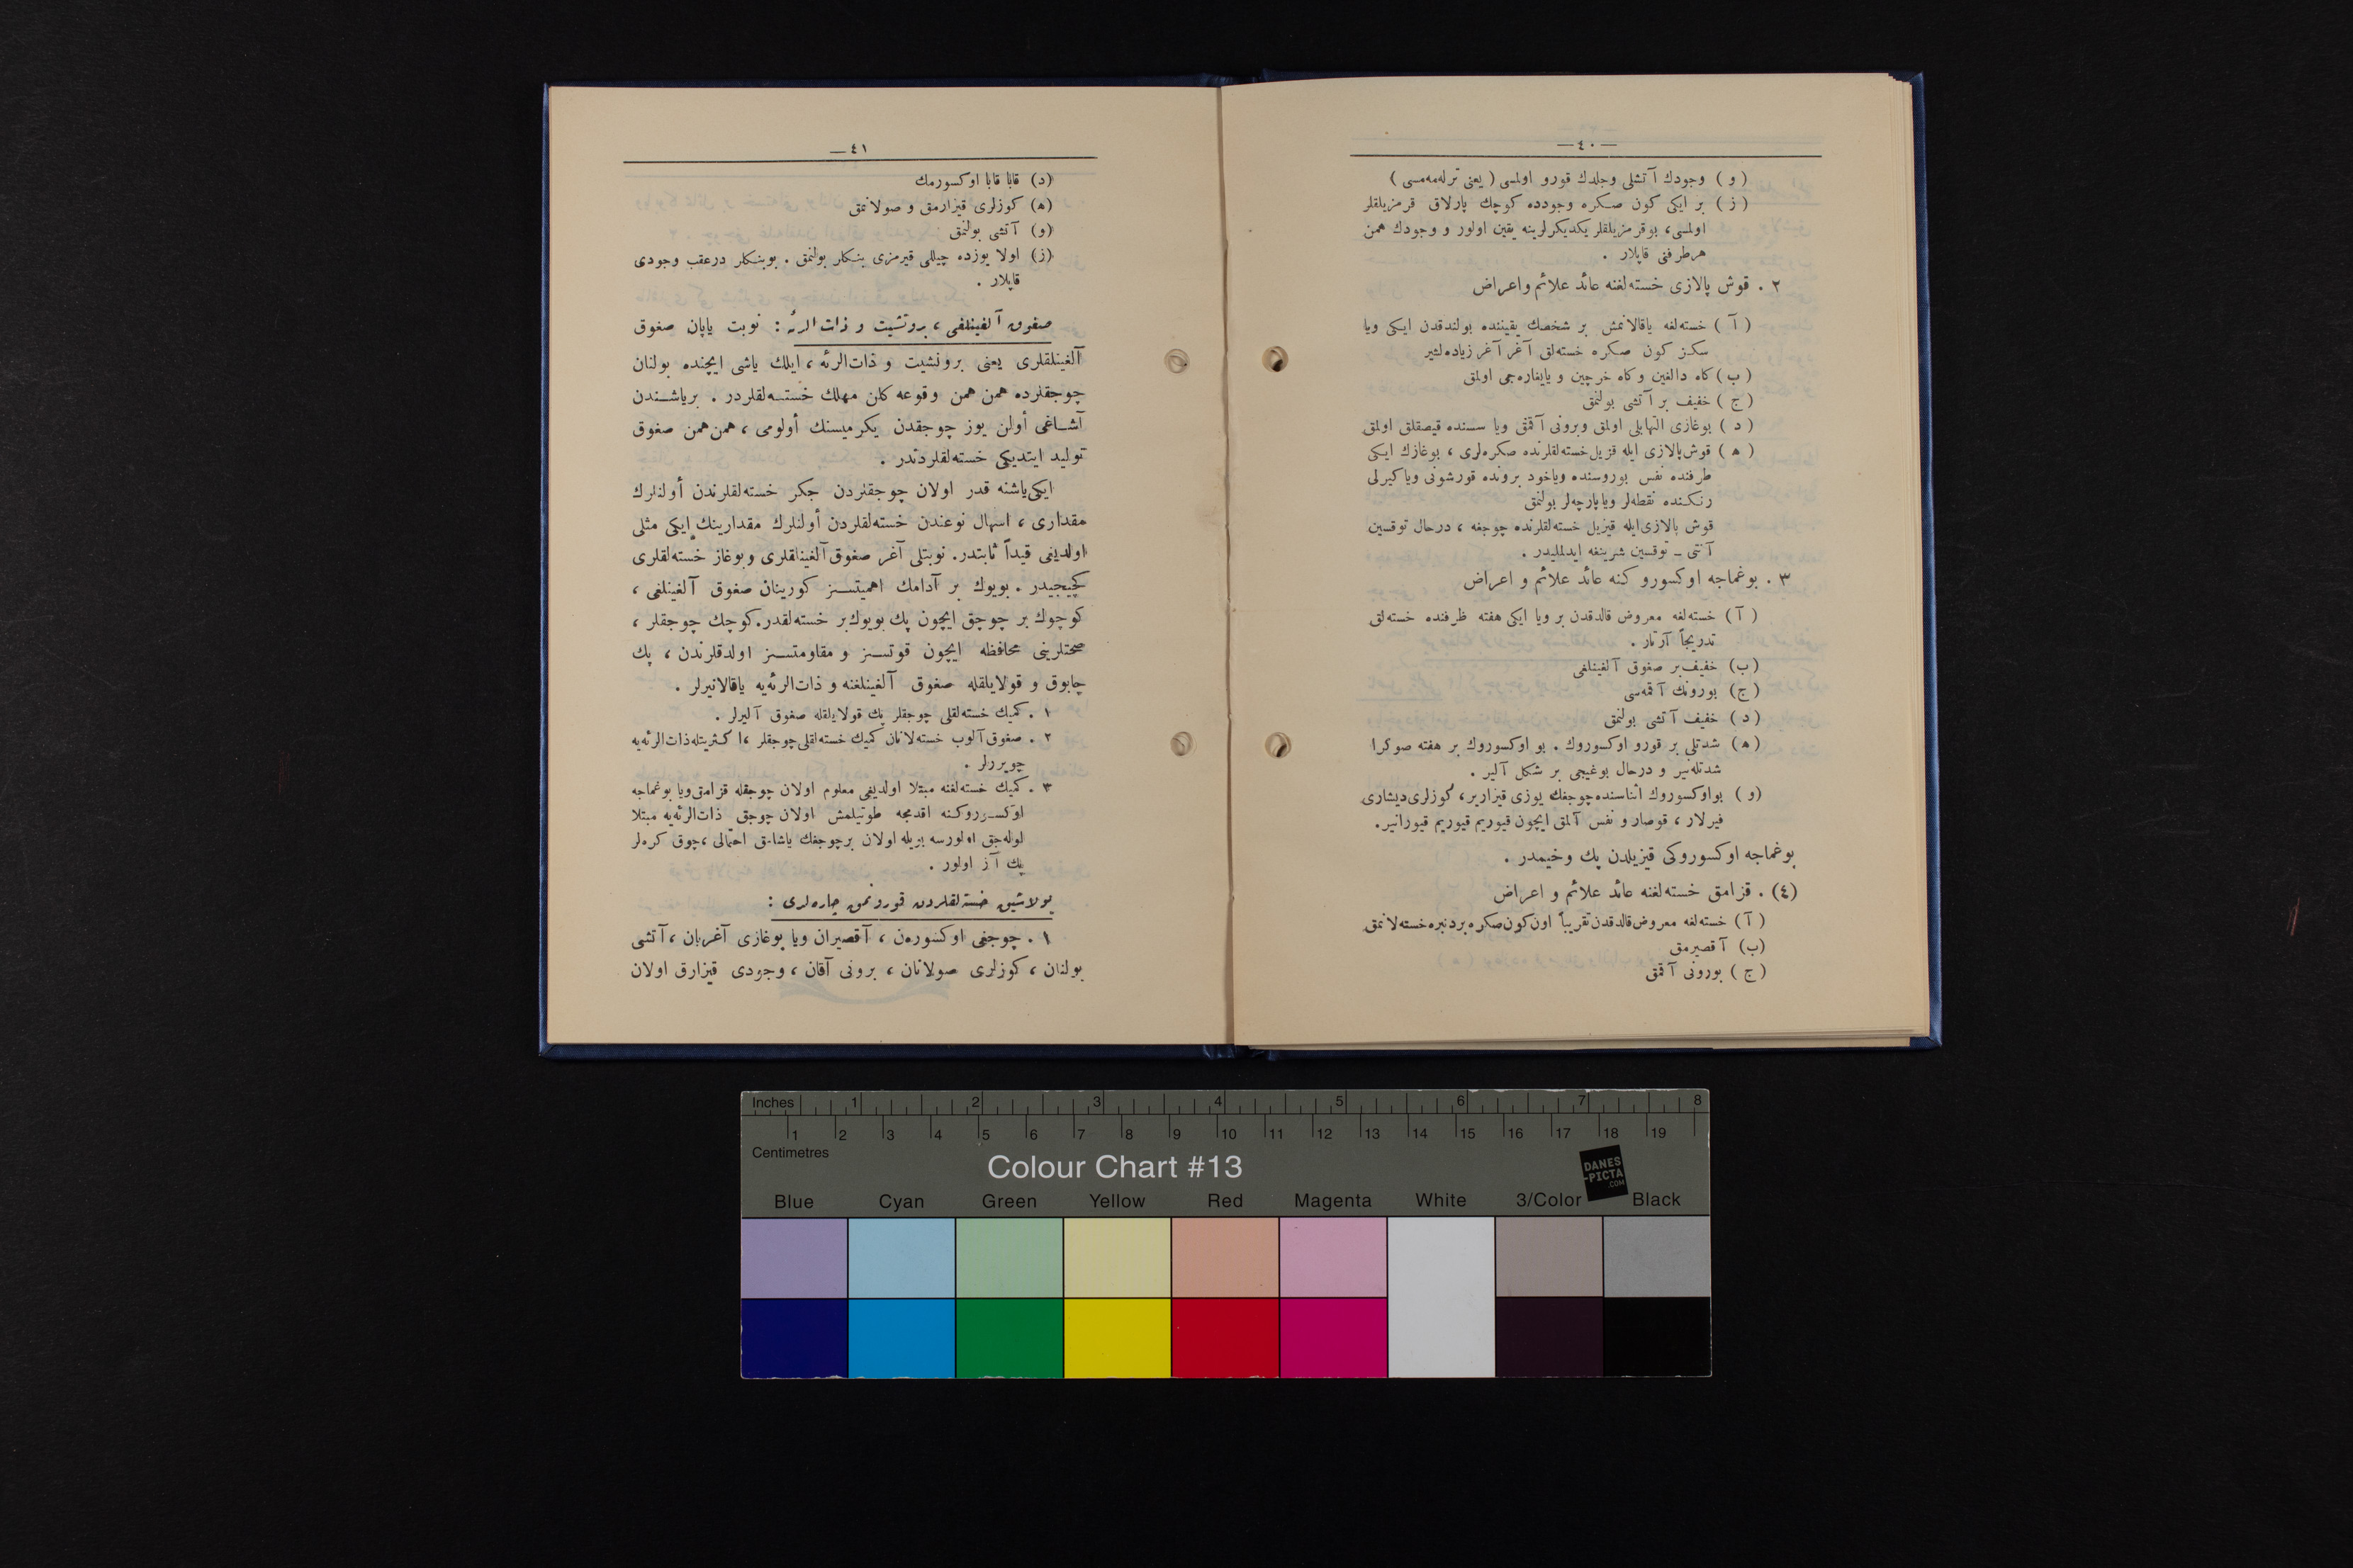 — ٤٠ —
( و ) وجودك آتشلى وجلدك قورو اولمسى ( يعنى ترله‌مه‌مسى )
( ز ) بر ايكى كون صكره وجودده كوچك پارلاق قرمزيلقلر
اولمسى، بوقرمزيلقلر يكديكرلرينه يقين اولور و وجودك همن
هرطرفنى قاپلار .
٢ . قوش پالازى خسته‌لغنه عائد علائم واعراض
( آ ) خسته‌لغه ياقالانمش بر شخصك يقيننده بولندقدن ايكى ويا
سكز كون صكره خسته‌لق آغر آغر زياده‌لشير
( ب ) كاه دالغين وكاه خرچين و يايغاره‌جى اولمق
( ج ) خفيف بر آتشى بولنمق
( د ) بوغازى التهابلى اولمق وبرونى آقمق ويا سسنده قيصقلق اولمق
( ه ) قوش‌پالازى ايله قزيل خسته‌لقلرنده صكره‌لرى ، بوغازك ايكى
طرفنده نفس بوروسنده وياخود برونده قورشونى وياكيرلى
رنكنده نقطه‌لر وياپارچه‌لر بولنمق
قوش پالازى‌ايله قيزيل خسته‌لقلرنده چوجغه ، درحال توقسين
آنتى ـ توقسين شرينغه ايدلمليدر .
٣ . بوغماجه اوكسوروكنه عائد علائم و اعراض
( آ ) خسته‌لغه معروض قالدقدن بر ويا ايكى هفته ظرفنده خسته‌لق
تدريجاً آرتار .
(ب) خفيف بر صغوق آلغينلغى
( ج ) بورونك آقمه‌سى
( د ) خفيف آتشى بولنمق
( ه ) شدتلى بر قورو اوكسوروك . بو اوكسوروك بر هفته صوكرا
شدتله‌نير و درحال بوغيجى بر شكل آلير .
( و ) بواوكسوروك اثناسنده‌چوجغك يوزى قيزارير، كوزلرى‌ديشارى
فيرلار ، قوصار و نفس آلمق ايچون قيوريم قيوريم قيورانير.
بوغماجه اوكسوروكى قيزيلدن پك وخيمدر .
(٤) . قزامق خسته‌لغنه عائد علائم و اعراض
( آ ) خسته‌لغه معروض‌قالدقدن‌تقريباً اون‌كون‌صكره‌بردنبره‌خسته‌لانمق
(ب) آقصيرمق
( ج ) بورونى آقمق
— ٤١
(د) قابا قابا اوكسورمك
(ه) كوزلرى قيزارمق و صولانمق
(و) آتشى بولنمق
(ز) اولا يوزده چيللى قيرمزى بنكلر بولنمق . بوبنكلر درعقب وجودى
قاپلار .
صغوق آلغينلغى ، برونشيت و ذات الرئه : نوبت ياپان صغوق
آلغينلقلرى يعنى برونشيت و ذات‌الرئه ، ايلك ياشى ايچنده بولنان
چوجقلرده همن همن وقوعه كلن مهلك خسته‌لقلردر . برياشندن
آشاغى أولن يوز چوجقدن يكرميسنك أولومى ، همن همن صغوق
توليد ايتديكى خسته‌لقلردندر .
ايكى‌ياشنه قدر اولان چوجقلردن جكر خسته‌لقلرندن أولنلرك
مقدارى ، اسهال نوعندن خسته‌لقلردن أولنلرك مقدارينك ايكى مثلى
اولديغى قيداً ثابتدر. نوبتلى آغر صغوق آلغينلقلرى وبوغاز خسته‌لقلرى
كچيجيدر . بويوك بر آدامك اهميتسز كورينان صغوق آلغينلغى ،
كوچوك بر چوجق ايچون پك بويوك‌بر خسته‌لقدر.كوچك چوجقلر ،
صحتلرينى محافظه ايچون قوتسز و مقاومتسز اولدقلرندن ، پك
چابوق و قولايلقله صغوق آلغينلغنه و ذات‌الرئه‌يه ياقالانيرلر .
١ . كميك خسته‌لقلى چوجقلر پك قولايلقله صغوق آليرلر .
٢ . صغوق آلوب خسته‌لانان كميك خسته‌لقلى‌چوجقلر ،اكثريتله‌ذات‌الرئه‌يه
چويررلر .
٣ . كميك خسته‌لغنه مبتلا اولديغى معلوم اولان چوجقله قزامق‌ويا بوغماجه
اوكسوروكنه اقدمجه طوتيلمش اولان چوجق ذات‌الرئه‌يه مبتلا
اوله‌جق اولورسه بويله اولان برچوجغك ياشامق احتمالى ،چوق كره‌لر
پك آز اولور .
بولاشيق خسته‌لقلردن قورونمق چاره‌لرى :
١ . چوجغى اوكسوره‌ن ، آقصيران ويا بوغازى آغريان ، آتشى
بولنان ، كوزلرى صولانان ، برونى آقان ، وجودى قيزارق اولان
Inches 1 2 3 4 5 6 7 8
1 2 3 4 5 6 7 8 9 10 11 12 13 14 15 16 17 18 19
Centimetres
Colour Chart #13
DANES
-PICTA
.COM
Blue Cyan Green Yellow Red Magenta White 3/Color Black